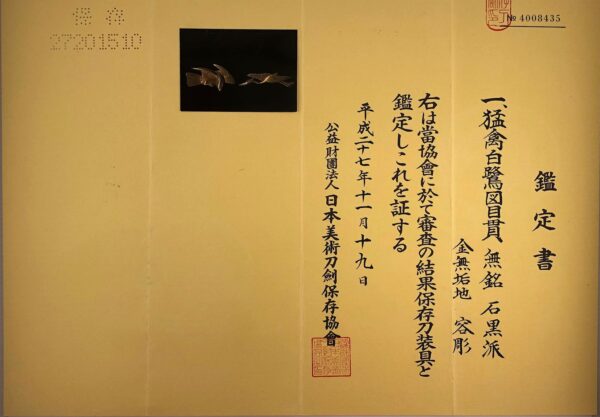 № 4008435
鑑定書
一、猛禽白鷺図目貫、無銘 石黒派
金無垢地 容彫
右は當協會に於て審査の結果保存刀装具と
鑑定しこれを証する
平成二十七年十一月十九日
公益財團法人 日本美術刀劍保存協會
保存
27201510